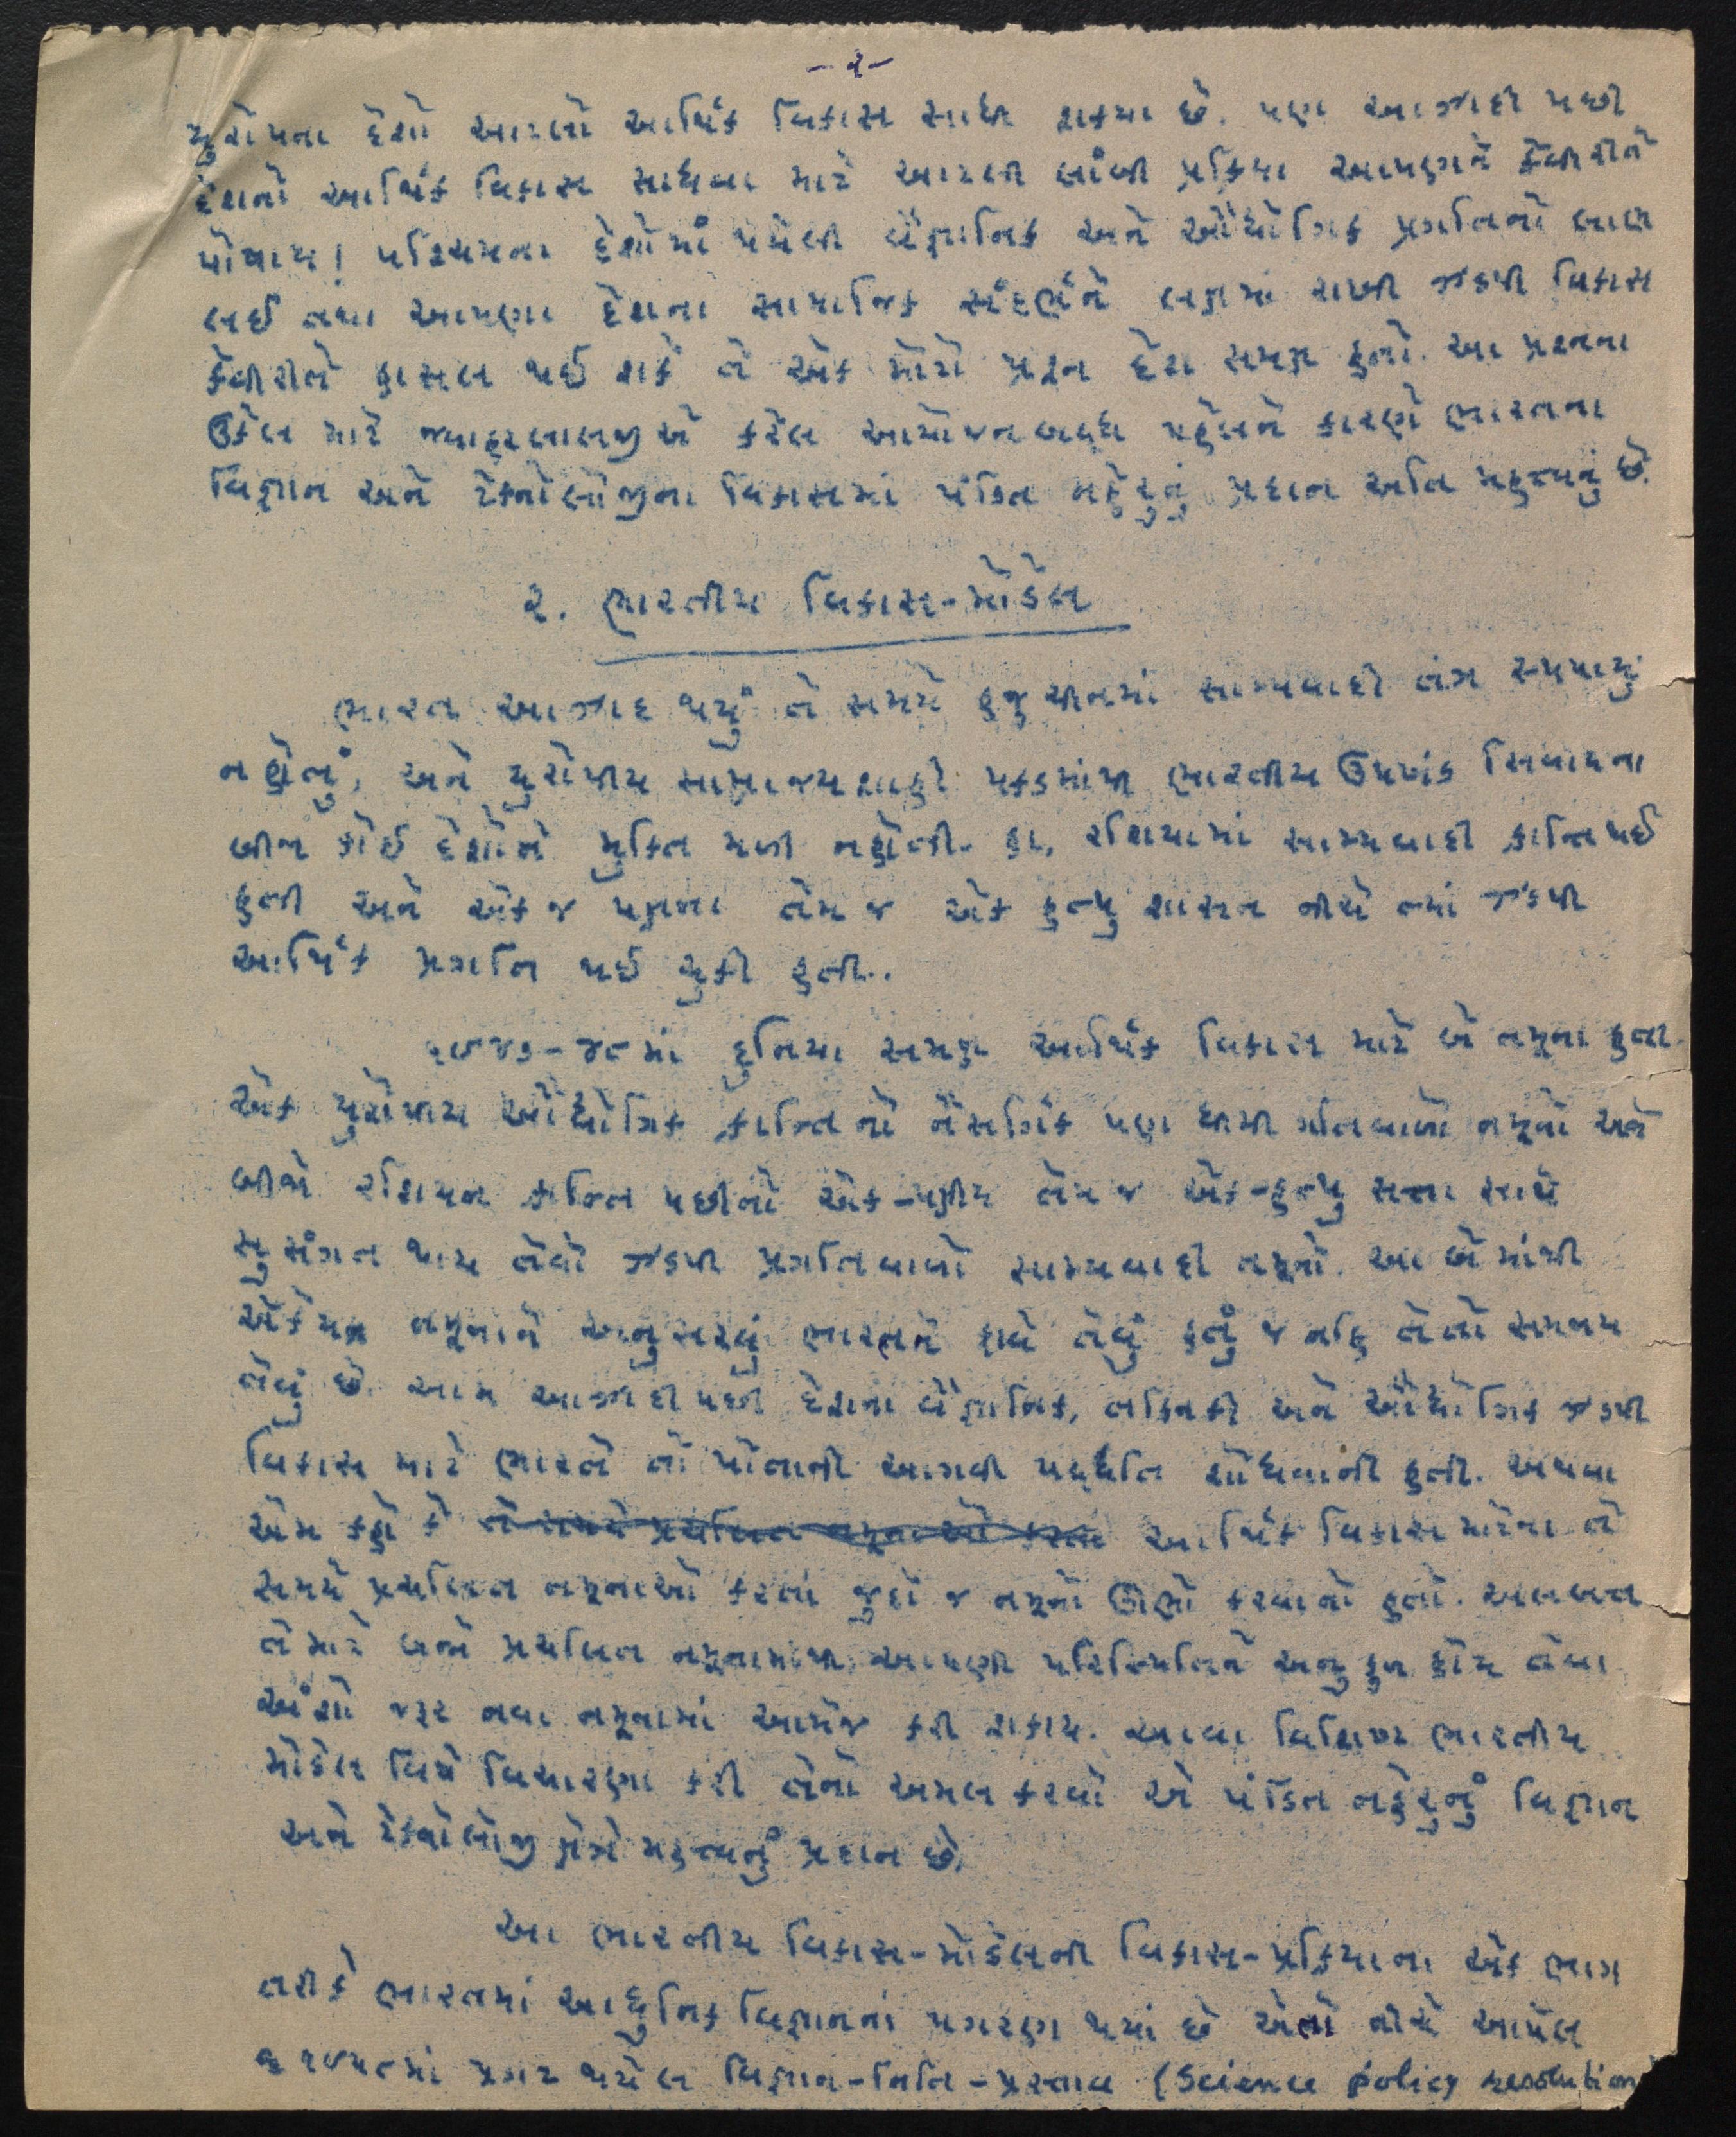 -૨-
યુરોપના દેશો આટલો આર્થિક વિકાસ સાધી શક્યા છે. પણ આઝાદી પછી
દેશનો આર્થિક વિકાસ સાધવા માટે આટલી લાંબી પ્રક્રિયા આપણને કેવી રીતે
પોષાય! પશ્ચિમના દેશોમાં થયેલી વૈજ્ઞાનિક અને ઔદ્યોગિક પ્રગતિનો લાભ
લઈ તથા આપણા દેશના સામાજિક સંદર્ભને લક્ષમાં રાખી ઝડપી વિકાસ
કેવી રીતે હાંસલ થઈ શકે તે એક મોટો પ્રશ્ન દેશ સમક્ષ હતો. આ પ્રશ્નના
ઉકેલ માટે જવાહરલાલજીએ કરેલ આયોજનબદ્ધ પહેલને કારણે ભારતના
વિજ્ઞાન અને ટેક્નોલોજીના વિકાસમાં પંડિત નહેરુનું પ્રદાન અતિ મહત્ત્વનું છે.
૨. ભારતીય વિકાસ-મોડેલ
ભારત આઝાદ થયું તે સમયે હજુ ચીનમાં સામ્યવાદી તંત્ર સ્થપાયું
નહોતું, અને યુરોપીય સામ્રાજ્યશાહી પકડમાંથી ભારતીય ઉપખંડ સિવાયના
બીજા કોઈ દેશોને મુક્તિ મળી નહોતી. હા, રશિયામાં સામ્યવાદી ક્રાંતિ થઈ
હતી અને એક જ પક્ષના તેમ જ એક હથ્થુ શાસન નીચે ત્યાં ઝડપી
આર્થિક પ્રગતિ થઈ ચુકી હતી.
૧૯૪૭-૪૮માં દુનિયા સમક્ષ આર્થિક વિકાસ માટે બે નમૂના હતા.
એક યુરોપીય ઔદ્યોગિક ક્રાંતિનો નૈસર્ગિક પણ ધીમી ગતિવાળો નમૂનો અને
બીજો રશિયન ક્રાંતિ પછીનો એક-પક્ષીય તેમ જ એક-હથ્થુ સત્તા સાથે
સુસંગત થાય તેવો ઝડપી પ્રગતિવાળો સામ્યવાદી નમૂનો. આ બેમાંથી
એકેય નમૂનાને અનુસરવું ભારતને ફાવે તેવું હતું જ નહિ તેતો સમજાય
તેવું છે. આમ આઝાદી પછી દેશના વૈજ્ઞાનિક, તાંત્રિકી અને ઔદ્યોગિક ઝડપી
વિકાસ માટે ભારતે તો પોતાની આગવી પદ્ધતિ શોધવાની હતી. અથવા
એમ કહો કે તે સમયે પ્રચલિત નમૂનાઓ કરતાં આર્થિક વિકાસ માટેના તે
સમયે પ્રચલિત નમૂનાઓ કરતાં જુદો જ નમૂનો ઊભો કરવાનો હતો. અલબત્ત
તે માટે બંને પ્રચલિત નમૂનામાંથી આપણી પરિસ્થિતિને અનુકુળ હોય તેવા
અંશો જરૂર નવા નમૂનામાં આમેજ કરી શકાય. આવા વિશિષ્ટ ભારતીય
મોડેલ વિષે વિચારણા કરી તેનો અમલ કરવો એ પંડિત નહેરુનું વિજ્ઞાન
અને ટેક્નોલોજી ક્ષેત્રે મહત્ત્વનું પ્રદાન છે.
આ ભારતીય વિકાસ-મોડેલની વિકાસ-પ્રક્રિયાના એક ભાગ
તરીકે ભારતમાં આધુનિક વિજ્ઞાનનાં પગરણ થયાં છે એનો નીચે આપેલ
૧૯૫૮માં પ્રગટ થયેલ વિજ્ઞાન-નિતિ-પ્રસ્તાવ (Science policy resolution